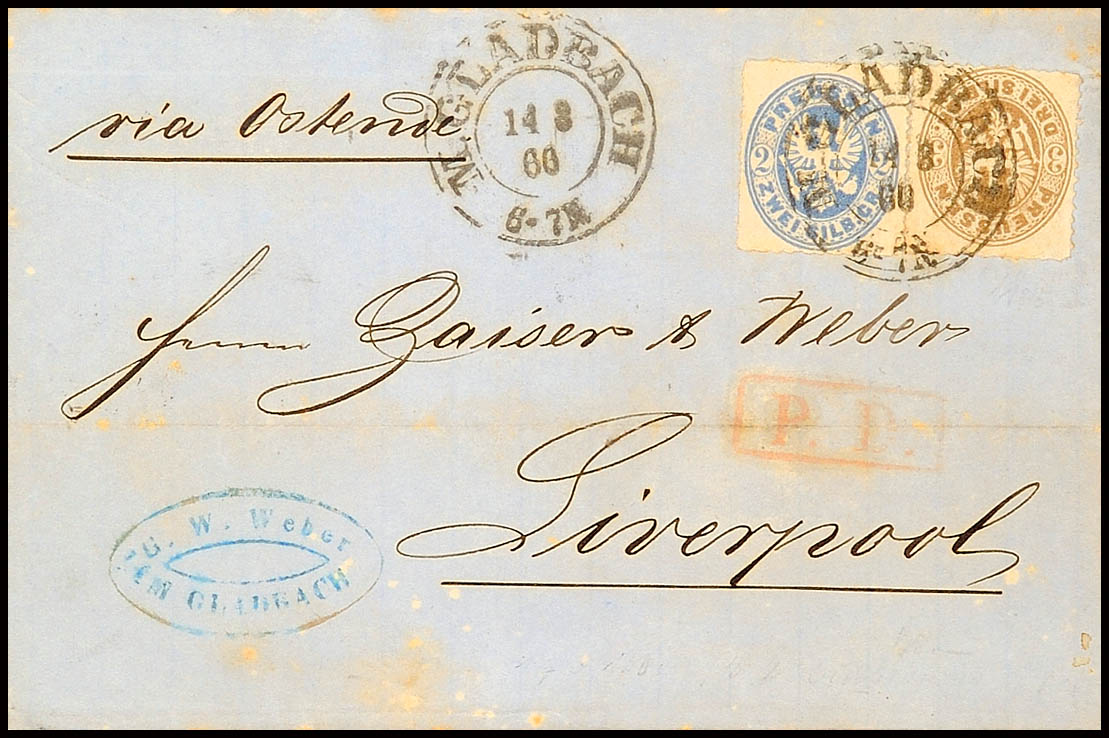 via Ostende
M. GLADBACH
14 8
60
6-7N
PREUSSEN
2 2
ZWEI SILB.GR.
PREUSSEN
3 3
14 8
60
6-7N
Herrn Zaiser & Weber
P. D.
Liverpool
G. W. Weber
GLADBACH